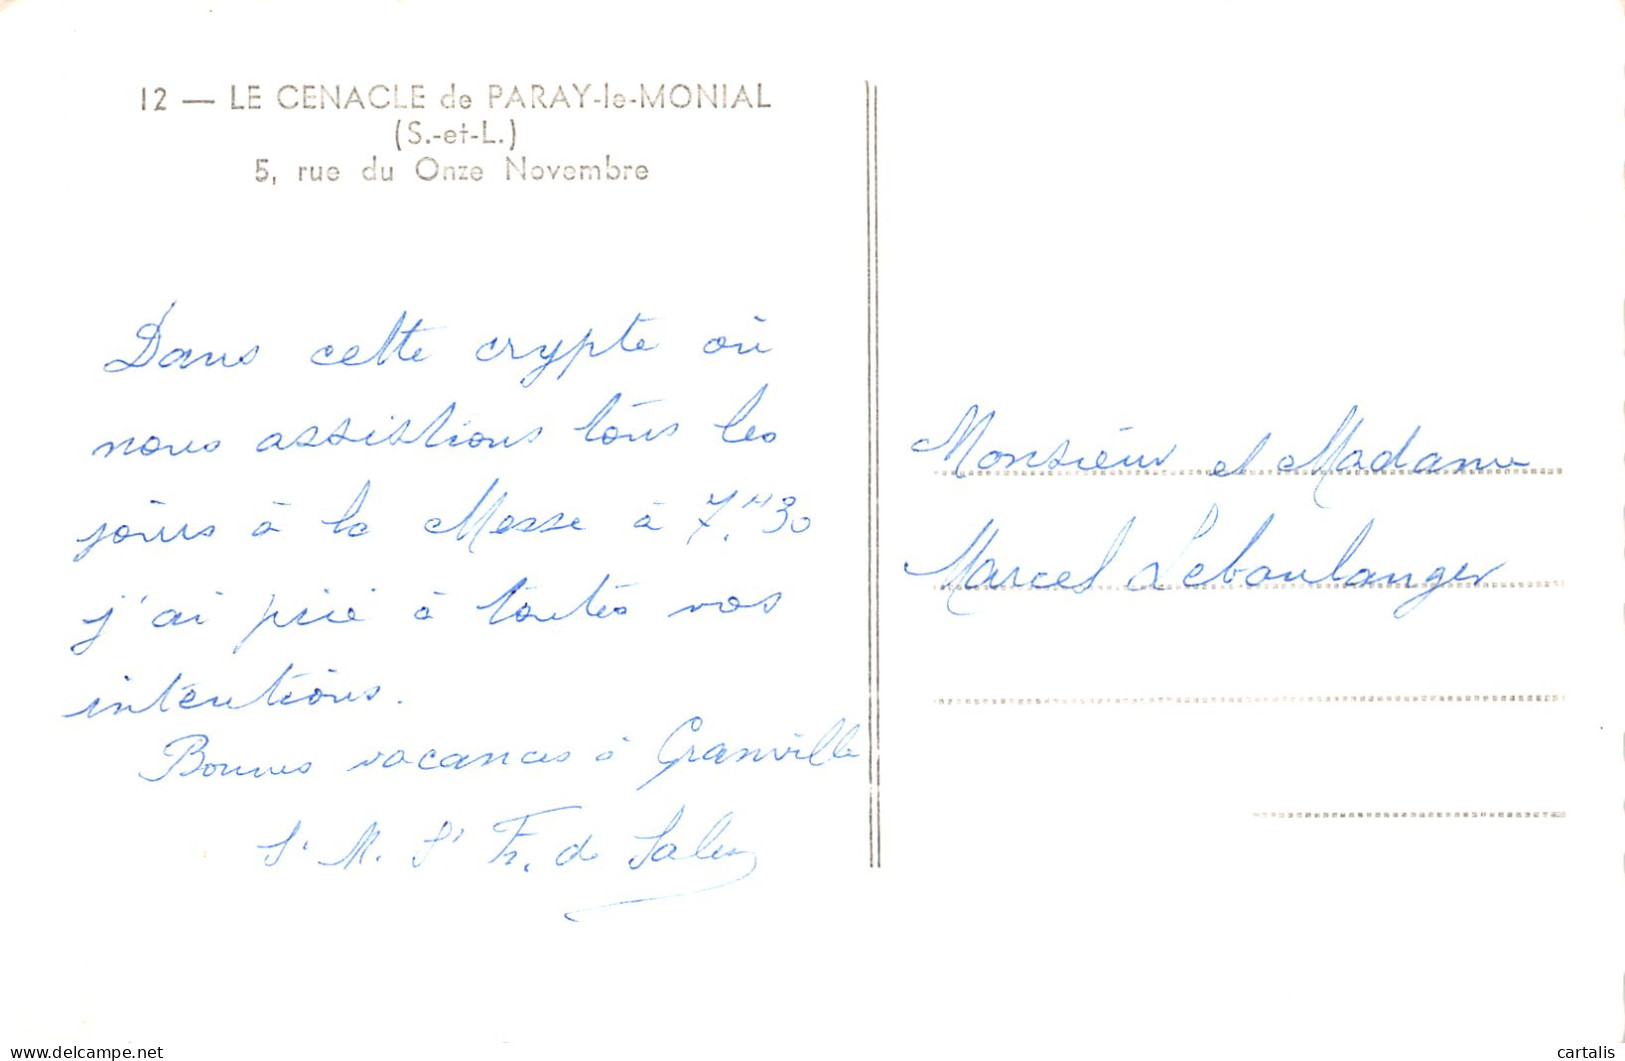 12 — LE CENACLE de PARAY-le-MONIAL
(S.-et-L.)
5, rue du Onze Novembre
Dans cette crypte où
nous assistions tous les
jours à la Messe à 7.H30
j'ai prié à toutes vos
intentions.
Bonnes vacances à Granville
Sr M. St Fr. de Sales
Monsieur et Madame
Marcel Leboulanger
delcampe.net
cartalis